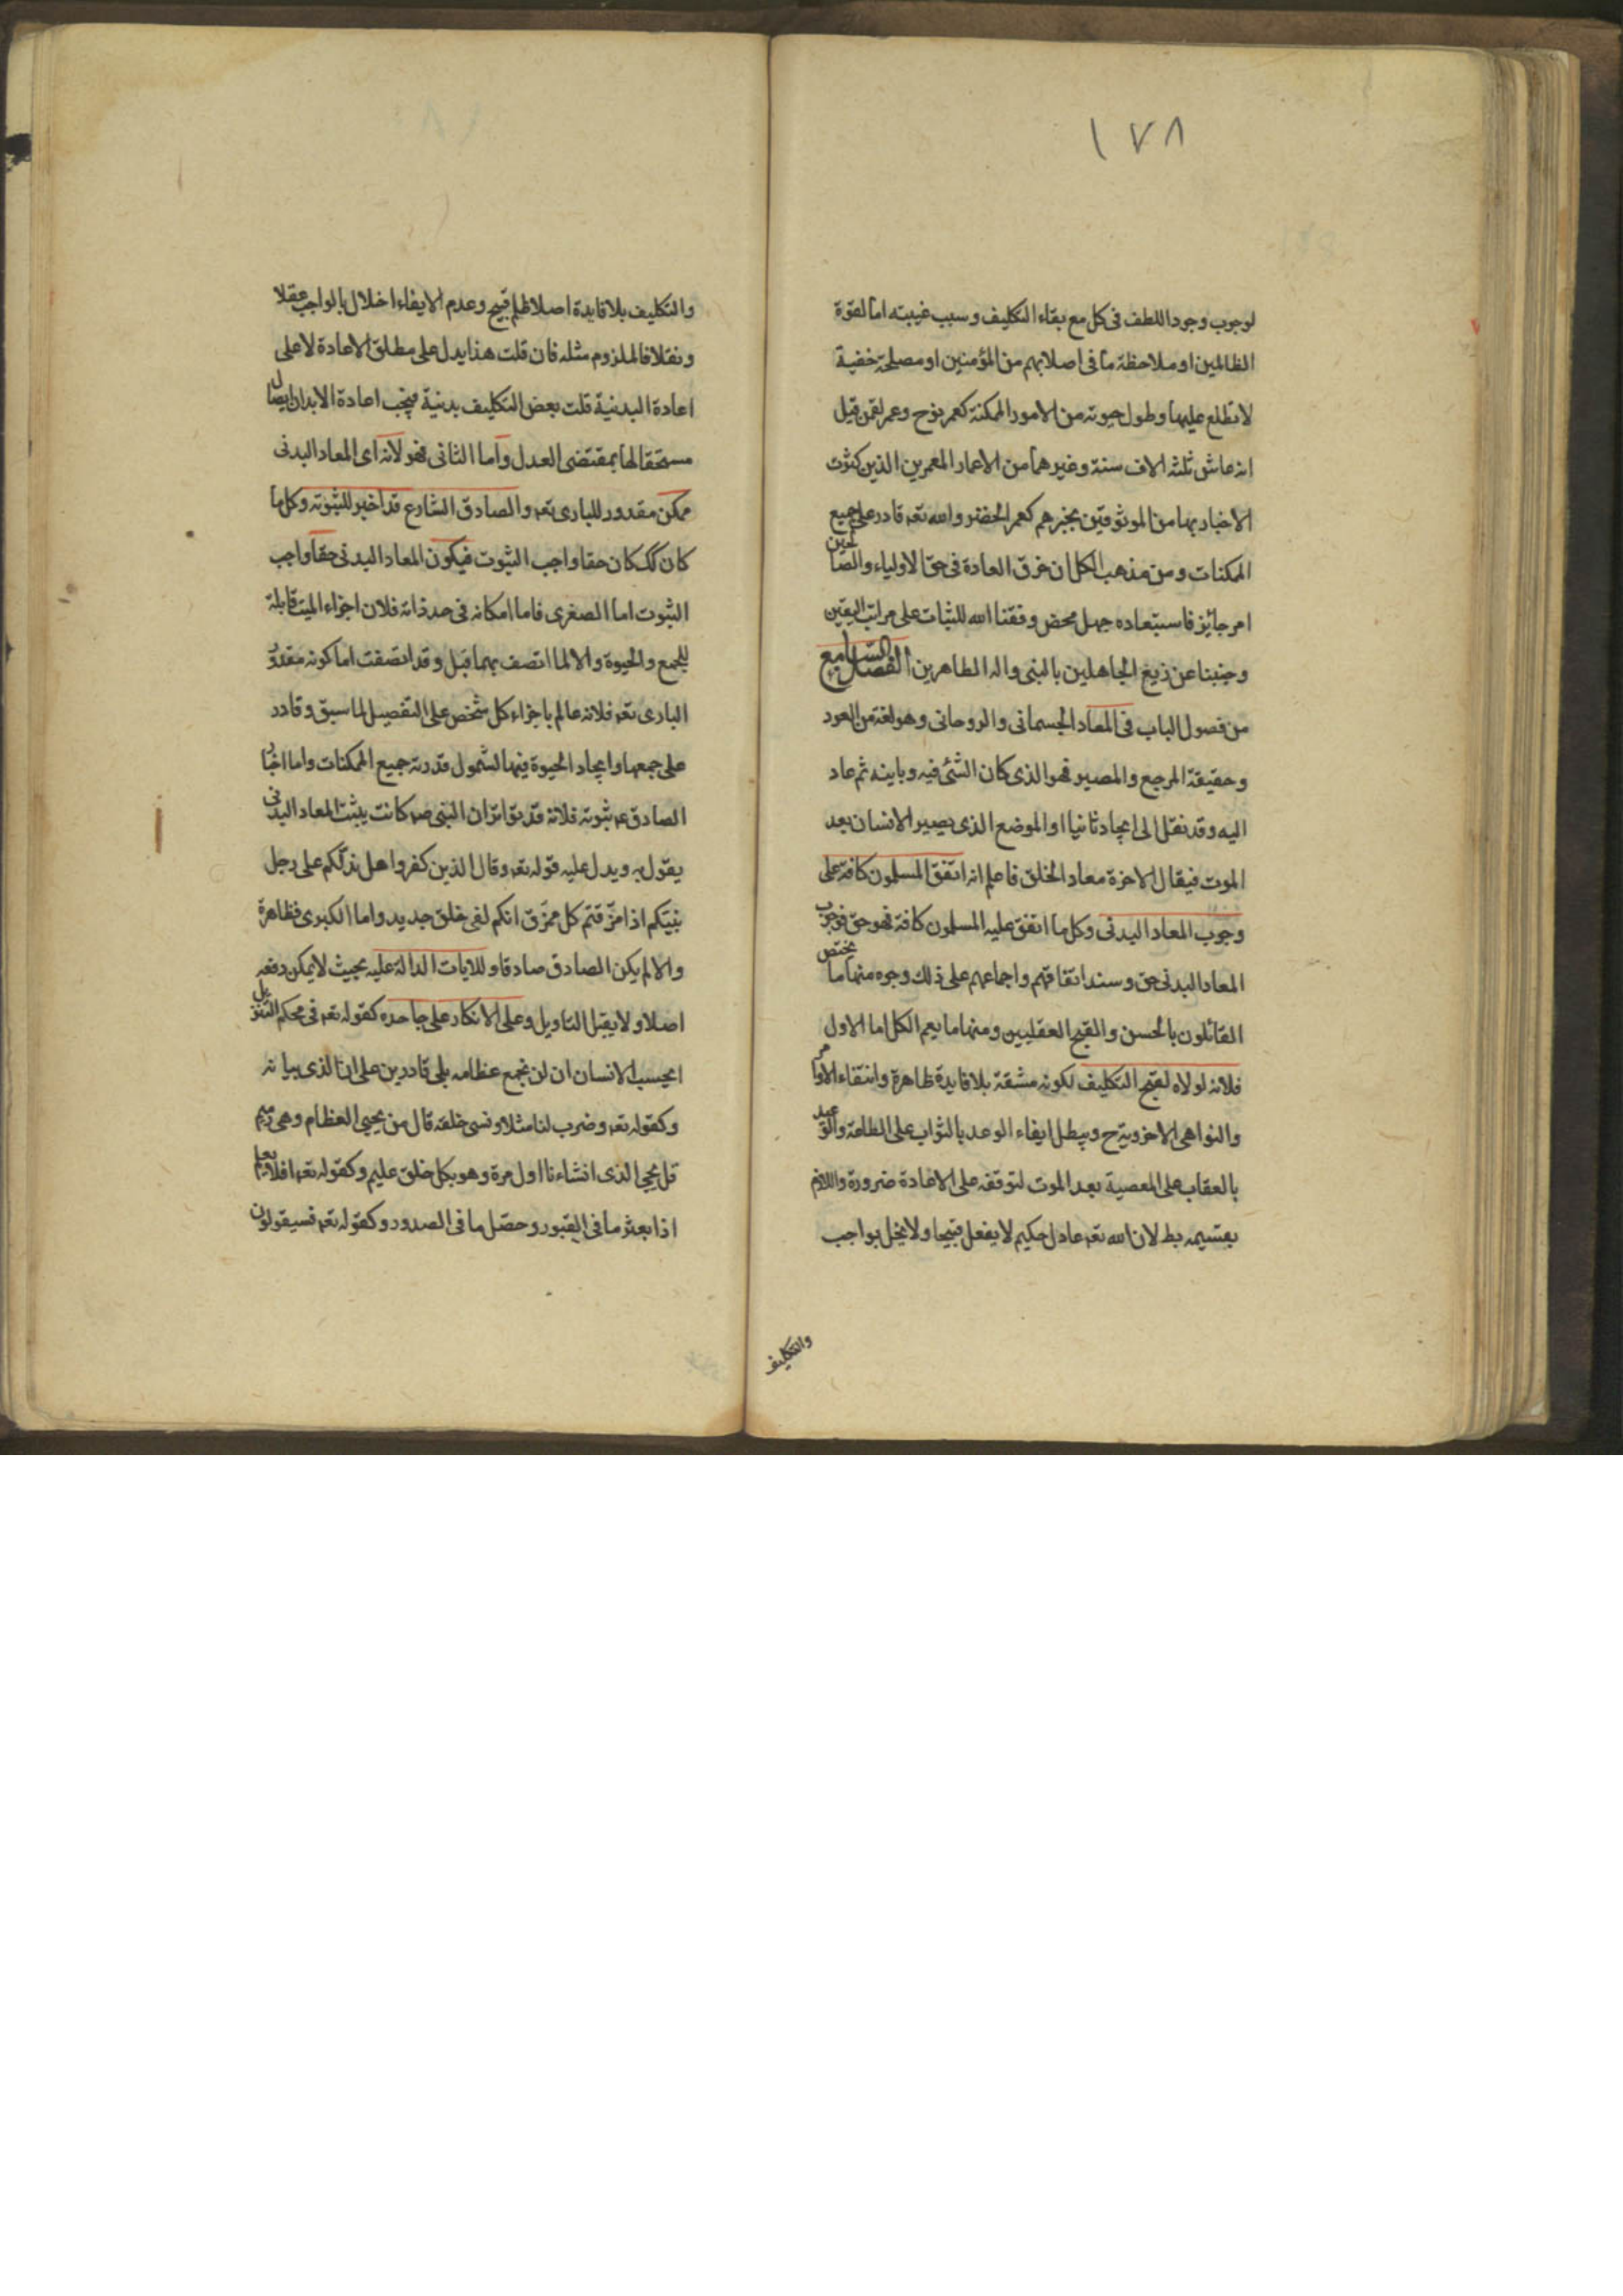 ١٧٨
لوجوب وجود اللطف فى كل مع بقاء التكليف و سبب غيبته اما لقوة
الظالمين او ملاحظة ما فى اصلابهم من المؤمنين او مصلحة خفية
لا نطلع عليها و طول حيوته من الامور الممكنة كعمر نوح و عمر لقمن قيل
انه عاش ثلثه الاف سنة و غيرهما من الاعمار المعمرين الذين كثرت
الاخبار بها من الموثوقين بخبرهم كعمر الخضر و الله تعه قادر على جميع
الممكنات و من مذهب الكل ان خرق العادة فى حق الاولياء و الصالحين
امر جائز فاستبعاده جهل محض وفقنا الله للثبات على مراتب اليقين
و جنبنا عن زيغ الجاهلين بالنبى و اله الطاهرين الفصل السابع
من فصول الباب فى المعاد الجسمانى و الروحانى و هو لغة من العود
و حقيقة المرجع و المصير فهو الذى كان الشئ فيه و باينه ثم عاد
اليه و قد نقل الى ايجاد ثانيا او الموضع الذى يصير الانسان بعد
الموت فيقال الاخرة معاد الخلق فاعلم انه اتفق المسلمون كافة على
وجوب المعاد البدنى و كل ما اتفق عليه المسلمون كافة فهو حق فوجوب
المعاد البدنى حق و سند اتفاقهم و اجماعهم على ذلك وجوه منها ما يختص
القائلون بالحسن و القبح العقليين و منها ما يعم الكل اما الاول
فلانه لولاه لقبح التكليف لكونه مشقة بلا فايدة ظاهرة و انتفاء الاوامر
و النواهى الاخروية ح و يبطل ايفاء الوعد بالثواب على الطاعة و الوعيد
بالعقاب على المعصية بعد الموت لتوقفه على الاعادة ضرورة و اللازم
بقسيمه بط لان الله تعه عادل حكيم لا يفعل قبيحا و لا يخل بواجب
والتكليف
والتكليف بلا فايدة اصلا ظلم قبيح و عدم الايفاء اخلال بالواجب عقلا
و نقلا فالملزوم مثله فان قلت هذا يدل على مطلق الاعادة لا على
اعادة البدنية قلت بعض التكليف بدنية فيجب اعادة الابدان ايصال
مستحقا لها بمقتضى العدل و اما الثانى فهو لانه اى المعاد البدنى
ممكن مقدور للبارى تعه و الصادق الشارع قد اخبر للثبوته و كل ما
كان كك كان حقا واجب الثبوت فيكون المعاد البدنى حقا واجب
الثبوت اما الصغرى فاما امكانه فى حد ذاته فلان اجزاء الميت قابلة
للجمع و الحيوة و الا لما اتصف بهما قبل و قد اتصفت اما كونه مقدور
البارى تعه فلانه عالم باجزاء كل شخص على التفصيل لما سبق و قادر
على جمعها و ايجاد الحيوة فيها لشمول قدرته جميع الممكنات و اما اخبار
الصادق عه ثبوته فلانه قد تواتر ان النبى صه كانت يثبت المعاد البدنى
يقول به و يدل عليه قوله تعه و قال الذين كفروا هل ندلكم على رجل
ينبئكم اذا مزقتم كل ممزق انكم لفى خلق جديد و اما الكبرى فظاهرة
و الا لم يكن الصادق صادقا و للايات الدالة عليه بحيث لا يمكن دفعه
اصلا و لا يقبل التاويل و على الانكار على جاحده كقوله تعه فى محكم التنزيل
ايحسب الانسان ان لن نجمع عظامه بلى قادرين على ان الذى بيانه
و كقوله تعه و ضرب لنا مثلا و نسى خلقه قال من يحيى العظام و هى رميم
قل يحيى الذى انشاءنا اول مرة و هو بكل خلق عليم و كقوله تعه افلا يعلم
اذا بعثر ما فى القبور و حصل ما فى الصدور و كقوله تعه فسيقولون